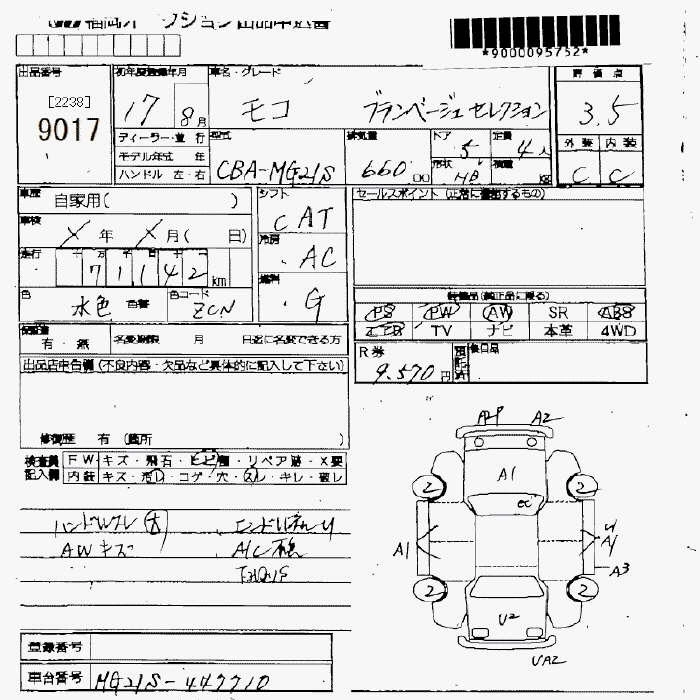 福岡オークション出品申込書
*9000095752*
出品番号
[2238]
9017
初年度登録年月
17 8月
車名・グレード
モコ ブランベージュセレクション
評価点
3.5
外装 内装
C C
ディーラー・並行
モデル年式 年
ハンドル 左・右
型式
CBA-MG21S
排気量
660 cc
ドア
5
定員
4人
形状
HB
積量
kg
車歴
自家用( )
車検
年 月( 日)
走行
十万千百十一
71142 km
色
水色
色替
色コード
ZCN
シフト
CAT
冷房
AC
燃料
G
セールスポイント(正常に機能するもの)
装備品(純正品に限る)
PS PW AW SR ABS
エアB TV ナビ 本革 4WD
R券
9.570円
後日品
保証書
有・紙
名変期限 月 日迄に名変できる方
出品店申告欄(不良内容・欠品など具体的に記入して下さい)
修復歴 有(箇所 )
検査員記入欄
FW キズ・飛石・ヒビ・リペア跡・X要
内装 キズ・汚レ・コゲ・穴・スレ・キレ・破レ
ハンドルスレ 大
AWキズ
A2P A2
A1
2 2
A1
A1
A3
2 2
U2
UA2
登録番号
車台番号
MG21S-447710